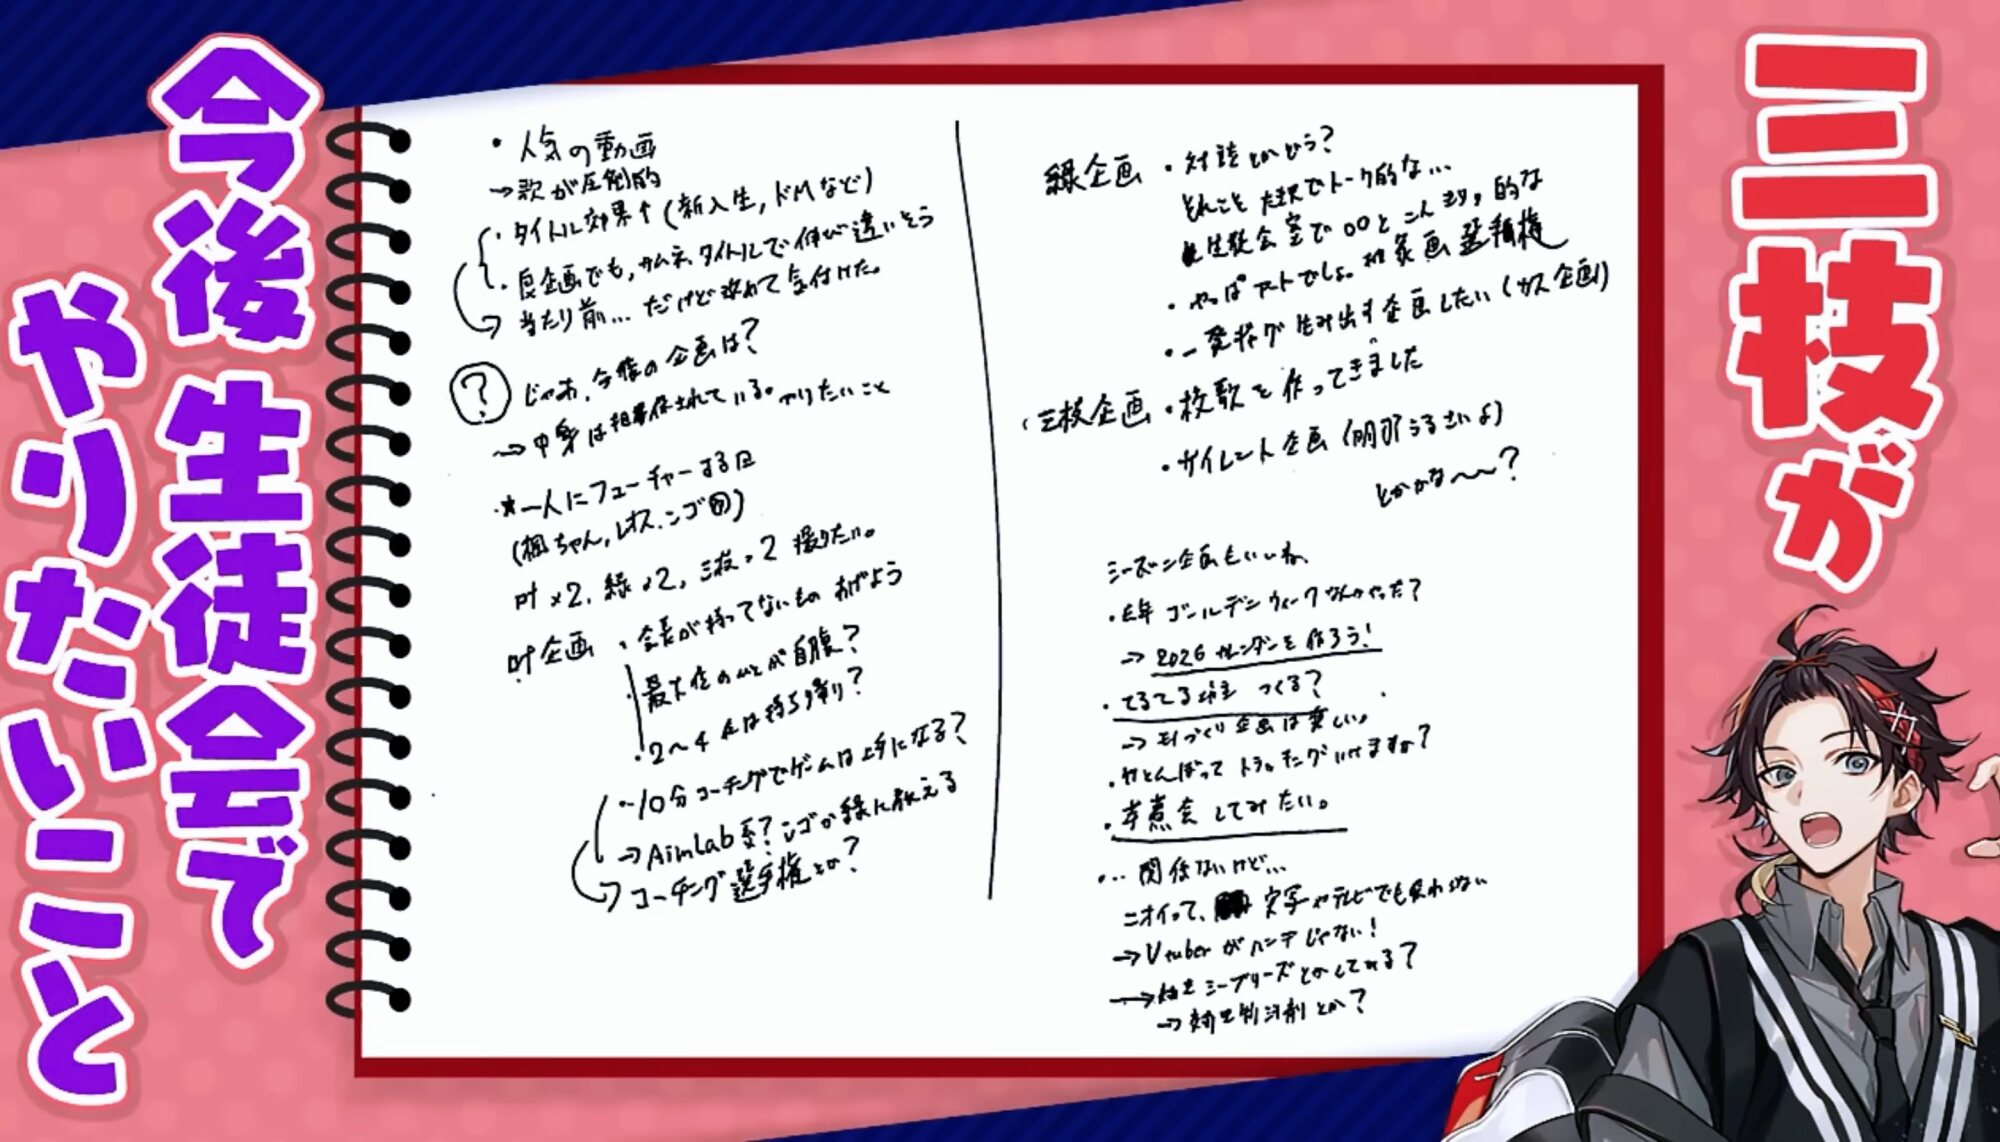 三枝が
今後生徒会で
やりたいこと
・人気の動画
→歌が圧倒的
・タイトル効果↑(新入生,ドMなど)
・良企画でも,サムネ,タイトルで伸び違いそう
当たり前…だけど改めて気付けた。
? じゃあ,今後の企画は?
→中身は担保されている。やりたいこと
*一人にフューチャーする回
(楓ちゃん,レオス,ンゴ回)
叶×2,緑×2,三枝×2 撮りたい。
叶企画 ・会長が持ってないものあげよう
・最下位のひとが自腹?
・2〜4位は持ち寄り?
・10分コーチングでゲームは上手になる?
→AimLab系?ンゴが緑に教える
コーチング選手権とか?
緑企画 ・対談とかどう?
それこそ で トーク的な…
生徒会室で〇〇とこんまり,的な
・やっぱアートでしょ。 選手権
・一発ギグ生み出す企画したい(カス企画)
・三枝企画 ・校歌を作ってきました
・サイレント企画(明那うるさいよ)
とかかな〜〜?
シーズン企画もいいね、
・去年ゴールデンウィークなんかやった?
→2026カレンダーを作ろう!
・てるてる坊主 つくる?
→ものづくり企画は楽しい。
・かとんぼってトラッキングいけますか?
・芋煮会してみたい。
・…関係ないけど…
ニオイって、 文字やテレビでも伝わらない
→VtuberがハンデじゃないI
→ シーブリーズとかしてみる?
→ 制汗剤とか?